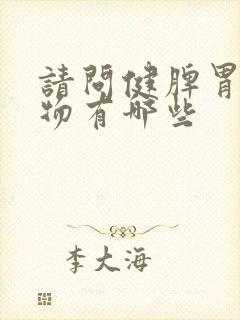 請問健脾胃
物有哪些
李大海